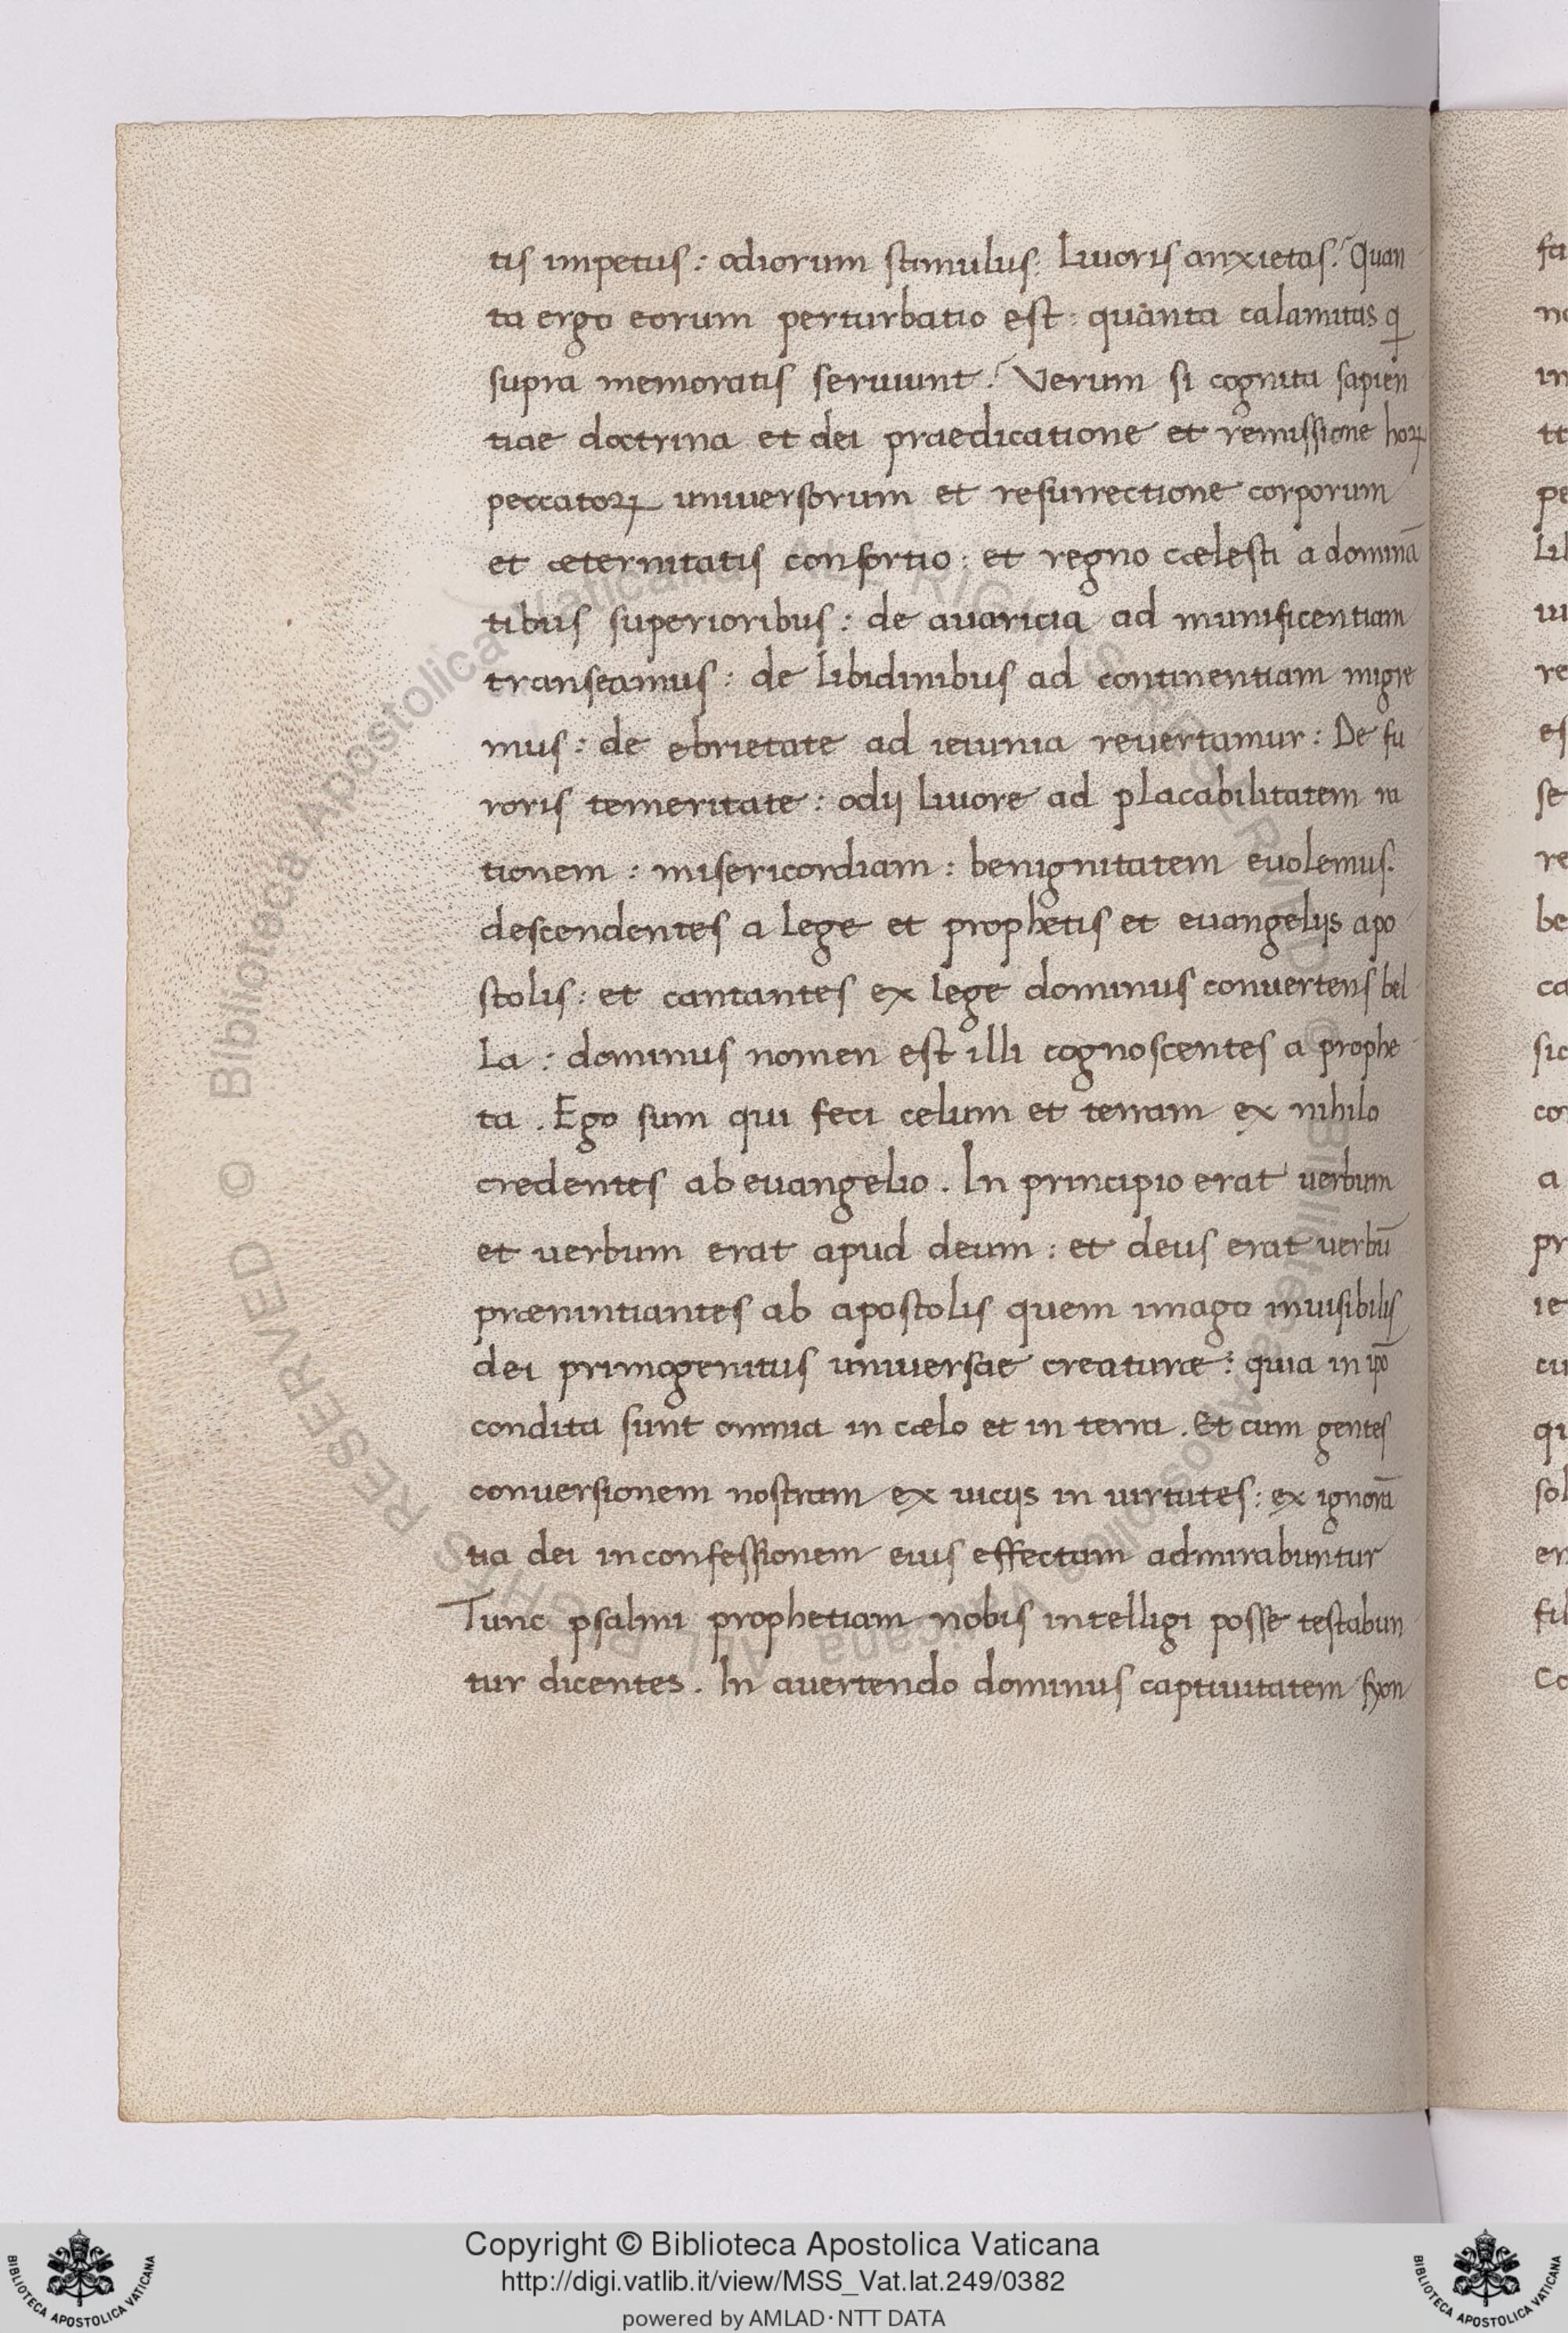 tis impetus : odiorum stimulus : Livoris anxietas ? Quan
ta ergo eorum perturbatio est : quanta calamitas q
supra memoratis serviunt ? Verum si cognita sapien
tiae doctrina et dei praedicatione et remissione hoꝝ
peccatoꝝ universorum et resurrectione corporum
et æternitatis consortio : et regno cælesti a dominā
tibus superioribus : de avaricia ad munificentiam
transeamus : de Libidinibus ad continentiam migre
mus : de ebrietate ad ieiunia revertamur : De fu
roris temeritate : odij Livore ad placabilitatem ra
tionem : misericordiam : benignitatem evolemus.
descendentes a lege et prophetis et euangelijs apo
stolis : et cantantes ex lege dominus convertens bel
La : dominus nomen est illi cognoscentes a prophe
ta . Ego sum qui feci celum et terram ex nihilo
credentes ab euangelio . In principio erat verbum
et verbum erat apud deum : et deus erat verbū
prænuntiantes ab apostolis quem imago invisibilis
dei primogenitus universae creaturæ : quia in ipō
condita sunt omnia in cælo et in terra . Et cum gentes
conversionem nostram ex vicijs in virtutes : ex ignorā
tia dei in confessionem eius effectam admirabuntur
Tunc psalmi prophetiam nobis intelligi posse testabun
tur dicentes . In avertendo dominus captivitatem syon
Copyright © Biblioteca Apostolica Vaticana
http://digi.vatlib.it/view/MSS_Vat.lat.249/0382
powered by AMLAD · NTT DATA
BIBLIOTECA APOSTOLICA VATICANA
BIBLIOTECA APOSTOLICA VATICANA